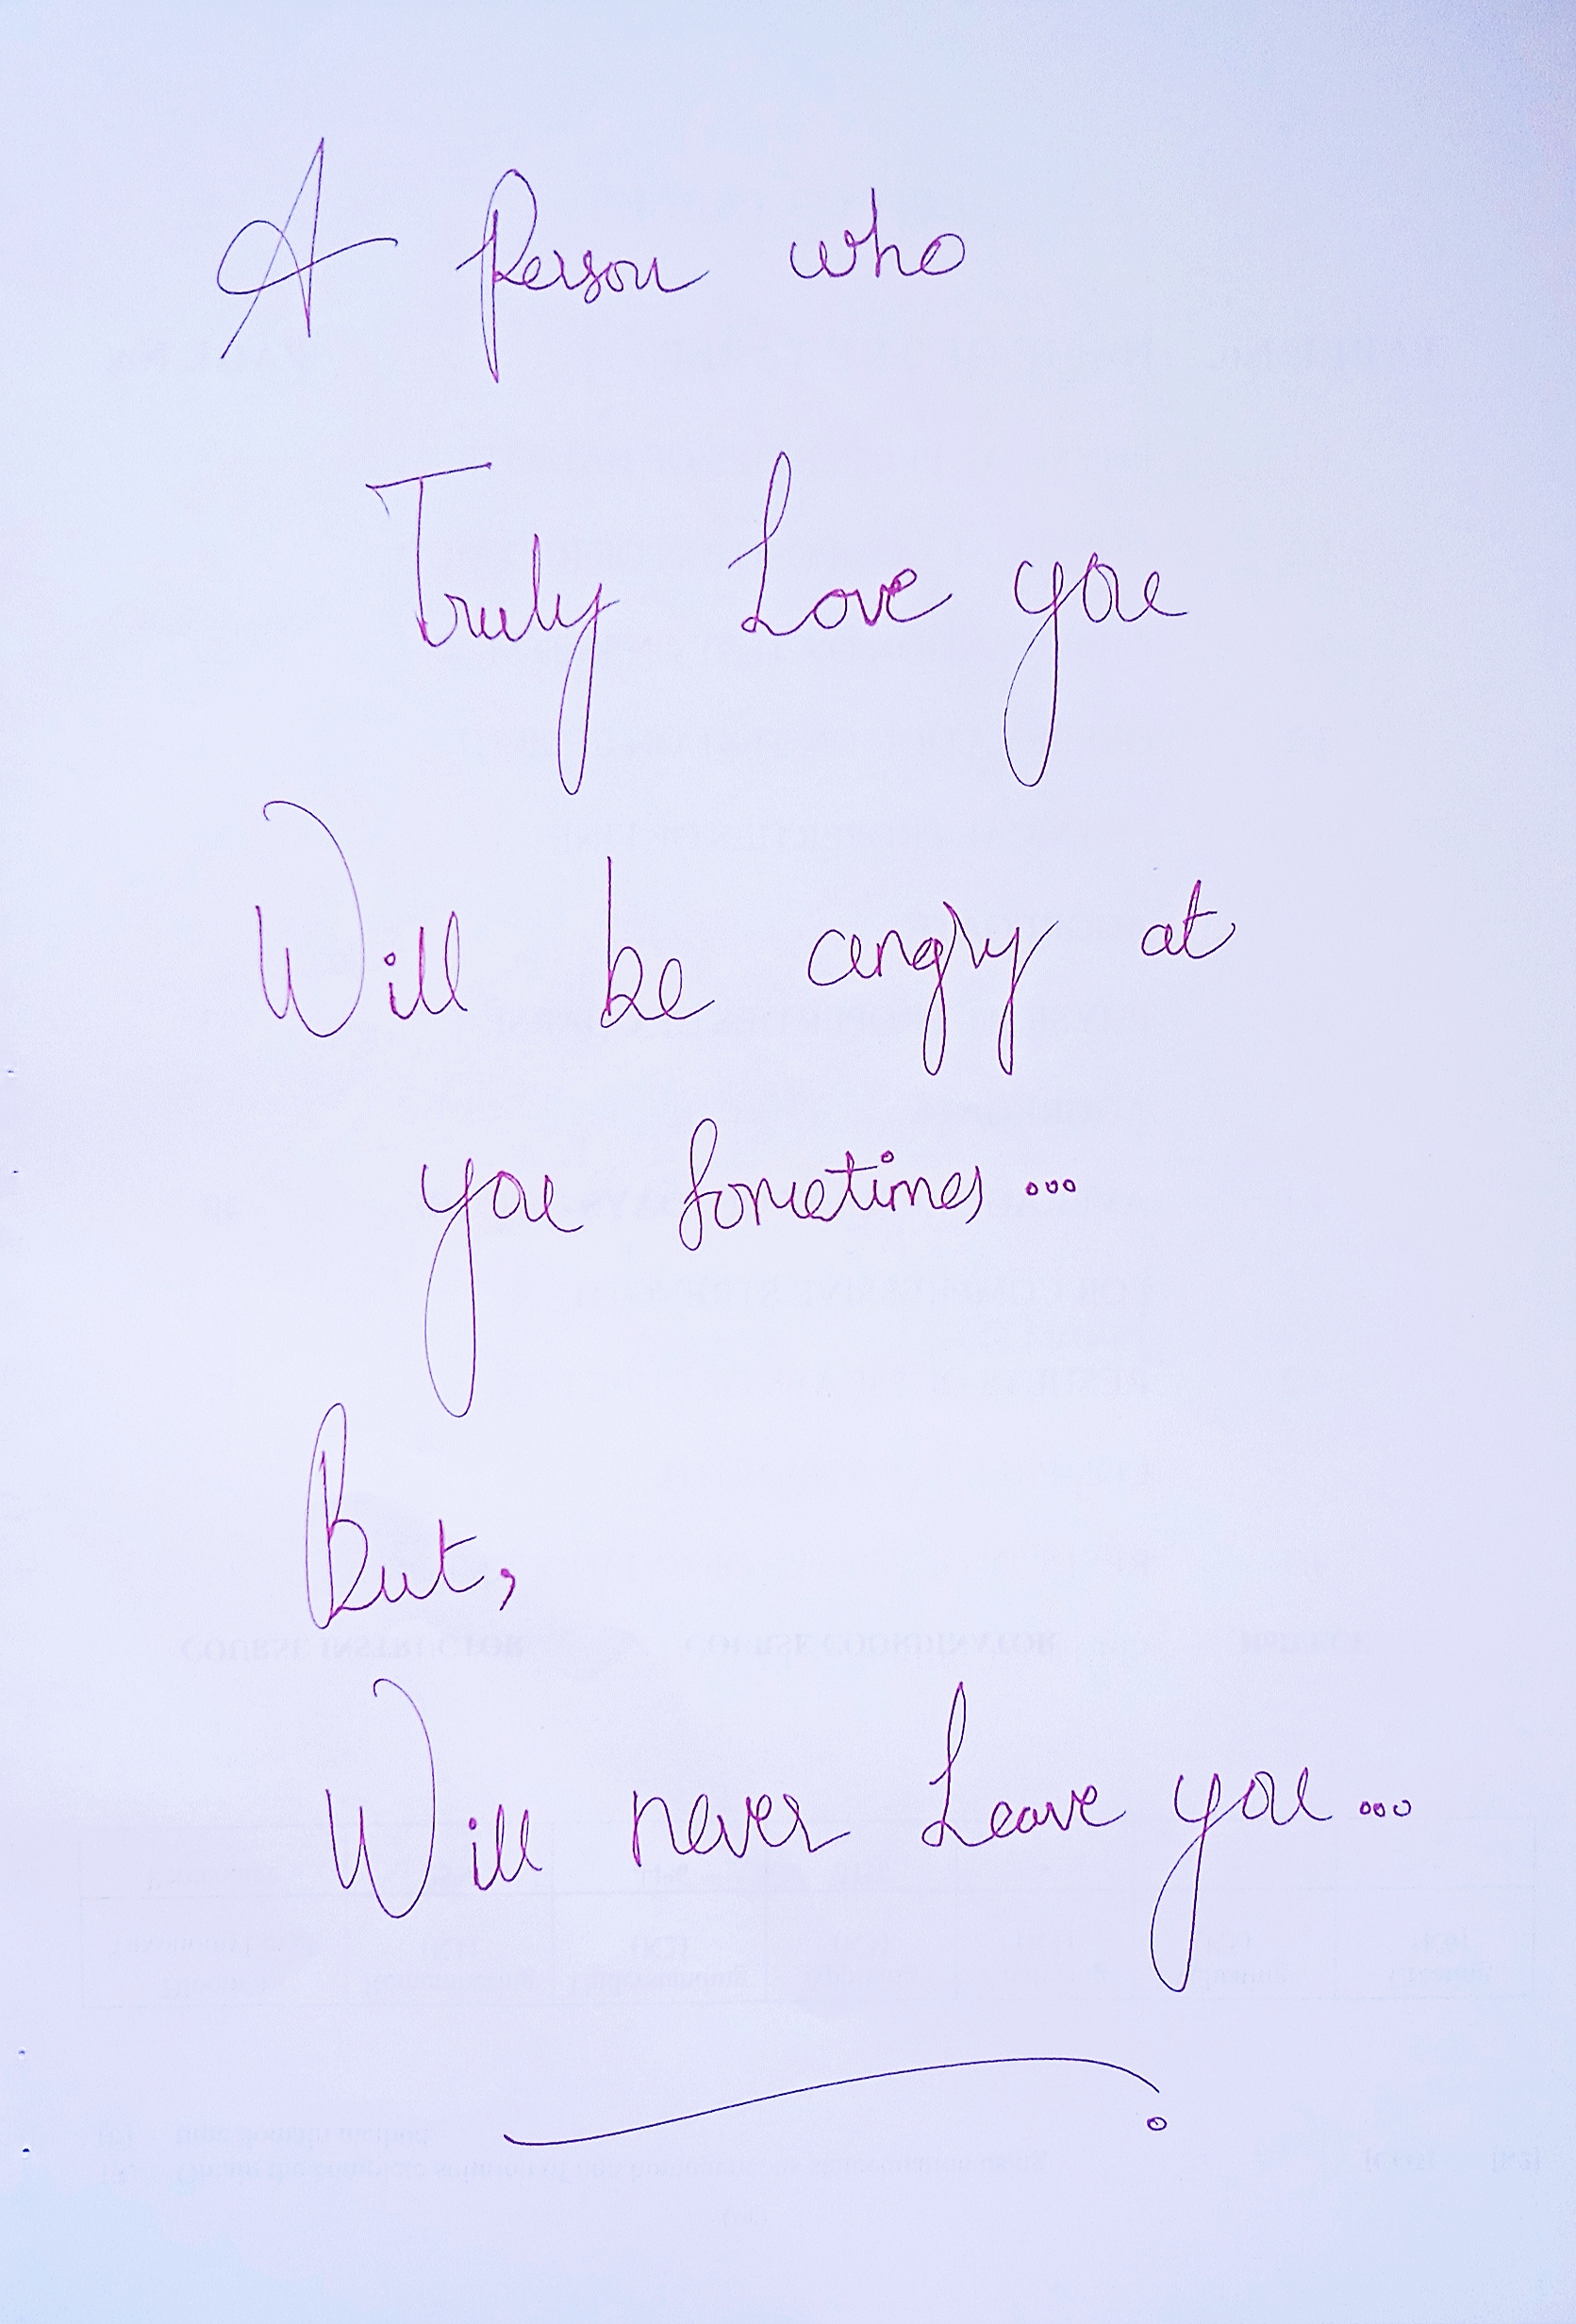 A Person who
Truly Love you
Will be angry at
you Sometimes...
But,
Will never Leave you...